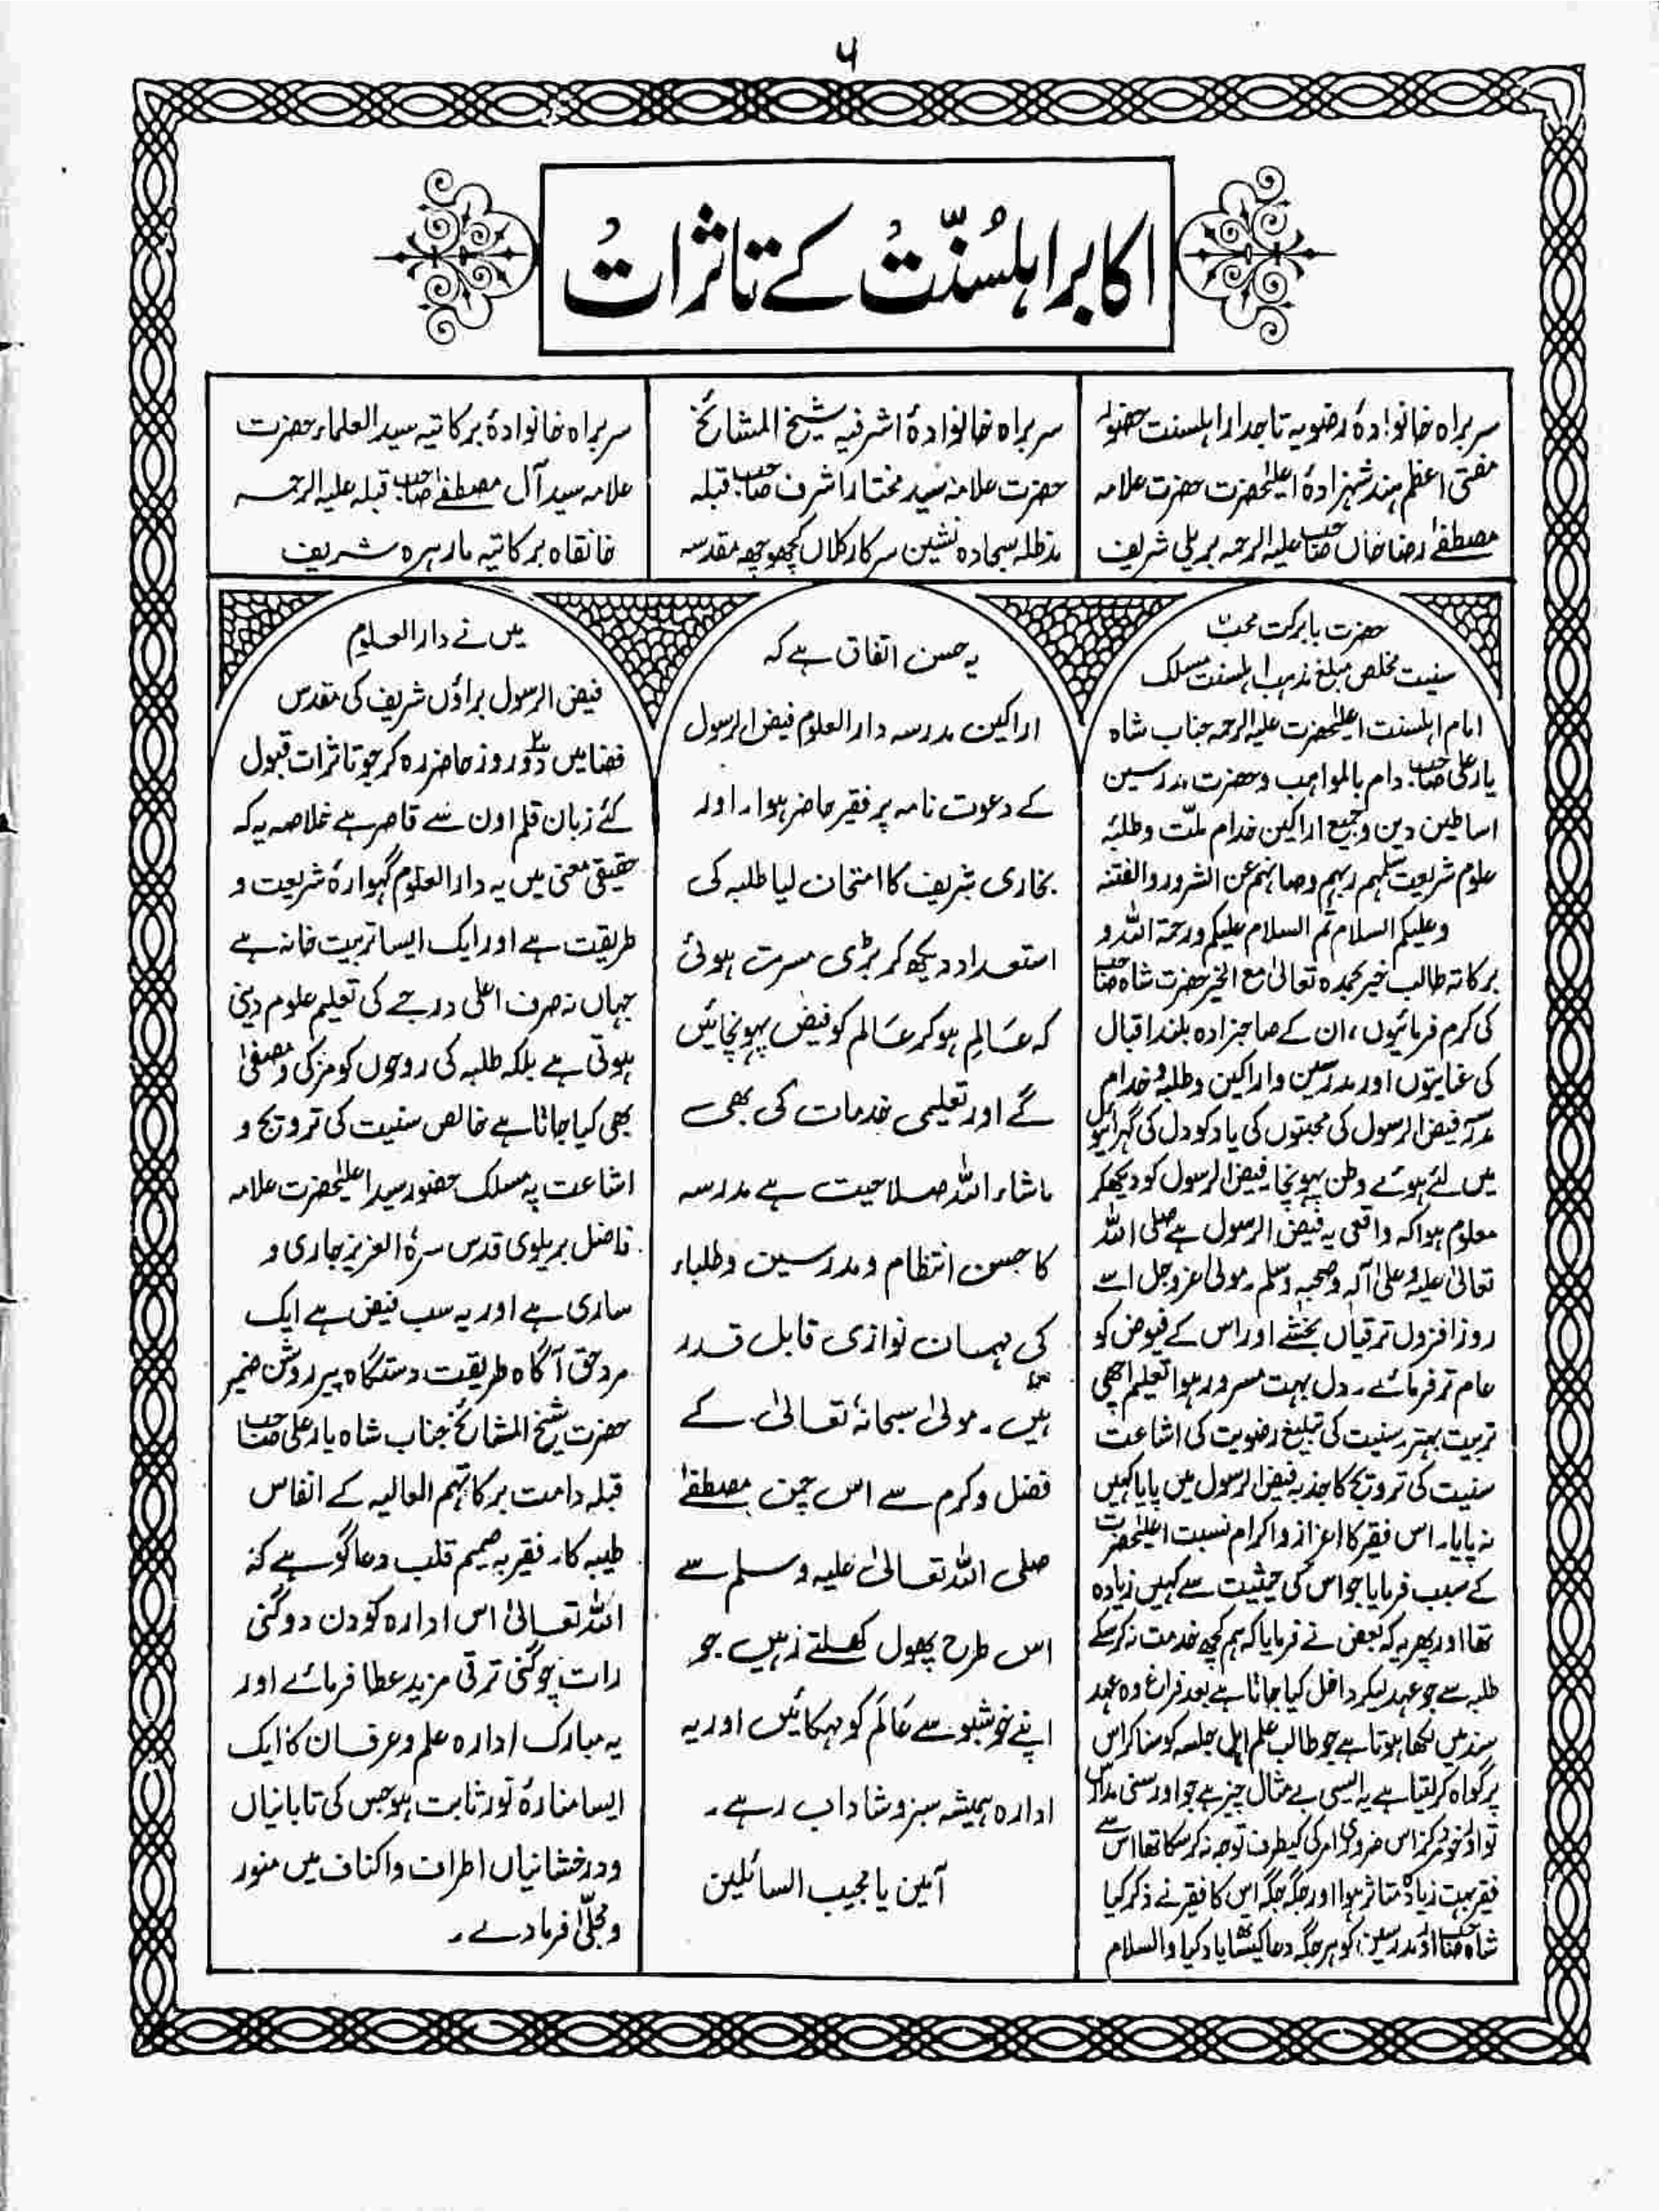 ۵
اکابر اہلسُنّت کے تاثرات
سربراہ خانوادۂ رضویہ تاجدار اہلسنت حضور
مفتی اعظم ہند شہزادۂ اعلیٰحضرت حضرت علامہ
مصطفےٰ رضا خاں صاحب علیہ الرحمہ بریلی شریف
حضرت بابرکت محب
سنیت مخلص مبلغ مذہب اہلسنت مسلک
امام اہلسنت اعلیٰحضرت علیہ الرحمہ جناب شاہ
یار علی صاحب دام بالمواہب وحضرت مدرسین
اساطین دین وجمیع اراکین خدام ملّت وطلبۂ
علوم شریعت سلمہم ربہم وصانہم عن الشرور والفتنہ
وعلیکم السلام ثم السلام علیکم ورحمۃ اللہ و
برکاتہ طالب خیر بحمدہ تعالیٰ مع الخیر حضرت شاہ صاحب
کی کرم فرمائیوں، ان کے صاحبزادہ بلند اقبال
کی عنایتوں اور مدرسین واراکین وطلبہ وخدام
مدرسہ فیض الرسول کی محبتوں کی یاد کو دل کی گہرائیوں
میں لئے ہوئے وطن پہونچا۔ فیض الرسول کو دیکھکر
معلوم ہوا کہ واقعی یہ فیض الرسول ہے صلی اللہ
تعالیٰ علیہ وعلیٰ آلہ وصحبہ وسلم۔ مولیٰ عزوجل اسے
روز افزوں ترقیاں بخشے اور اس کے فیوض کو
عام تر فرمائے۔ دل بہت مسرور ہوا تعلیم اچھی
تربیت بہتر، سنیت کی تبلیغ رضویت کی اشاعت
سنیت کی ترویج کا جذبہ فیض الرسول میں پایا کہیں
نہ پایا۔ اس فقیر کا اعزاز واکرام نسبت اعلیٰحضرت
کے سبب فرمایا جو اس کی حیثیت سے کہیں زیادہ
تھا اور پھر یہ کہ بعض نے فرمایا کہ ہم کچھ خدمت نہ کرسکے
طلبہ سے جو عہد لیکر داخل کیا جاتا ہے بعد فراغ وہ عہد
سند میں لکھا ہوتا ہے جو طالب علم اہل جلسہ کو سنا کر اس
پر گواہ کرلیتا ہے یہ ایسی بے مثال چیز ہے جو اور سنی مدارس
تو اور خود مرکز اس ضروری امر کی کیطرف توجہ نہ کرسکا تھا اس سے
فقیر بہت زیادہ متاثر ہوا اور جگہ جگہ اس کا فقیر نے ذکر کیا
شاہ صاحب اور مدرسین کو ہر جگہ دعا کیساتھ یاد کیا والسلام
سربراہ خانوادۂ اشرفیہ شیخ المشائخ
حضرت علامہ سید مختار اشرف صاحب قبلہ
مدظلہ سجادہ نشین سرکار کلاں کچھوچھہ مقدسہ
یہ حسن اتفاق ہے کہ
اراکین مدرسہ دار العلوم فیض الرسول
کے دعوت نامہ پر فقیر حاضر ہوا۔ اور
بخاری شریف کا امتحان لیا طلبہ کی
استعداد دیکھ کر بڑی مسرت ہوئی
کہ عَالِم ہوکر عَالم کو فیض پہونچائیں
گے اور تعلیمی خدمات کی بھی
ماشاء اللہ صلاحیت ہے مدرسہ
کا حسن انتظام ومدرسین وطلباء
کی مہمان نوازی قابل قدر
ہیں۔ مولیٰ سبحانہٗ تعالیٰ کے
فضل وکرم سے اس چمن مصطفےٰ
صلی اللہ تعالیٰ علیہ وسلم سے
اس طرح پھول کھلتے رہیں جو
اپنے خوشبو سے عَالَم کو مہکائیں اور یہ
ادارہ ہمیشہ سبز وشاداب رہے۔
آمین یا مجیب السائلین
سربراہ خانوادۂ برکاتیہ سید العلماء حضرت
علامہ سید آل مصطفےٰ صاحب قبلہ علیہ الرحمہ
خانقاہ برکاتیہ مارہرہ شریف
میں نے دار العلوم
فیض الرسول براؤں شریف کی مقدس
فضا میں دو۲ روز حاضر رہ کر جو تاثرات قبول
کئے زبان قلم اون سے قاصر ہے خلاصہ یہ کہ
حقیقی معنی میں یہ دار العلوم گہوارۂ شریعت و
طریقت ہے اور ایک ایسا تربیت خانہ ہے
جہاں نہ صرف اعلی درجے کی تعلیم علوم دینی
ہوتی ہے بلکہ طلبہ کی روحوں کو مزکی ومصفیٰ
بھی کیا جاتا ہے خالص سنیت کی ترویج و
اشاعت پہ مسلک حضور سیدا علیٰحضرت علامہ
فاضل بریلوی قدس سرہٗ العزیز جاری و
ساری ہے اور یہ سب فیض ہے ایک
مرد حق آگاہ طریقت دستگاہ پیر روشن ضمیر
حضرت شیخ المشائخ جناب شاہ یار علی صاحب
قبلہ دامت برکاتہم العالیہ کے انفاس
طیبہ کا۔ فقیر بہ صمیم قلب دعا گو ہے کہ
اللہ تعالیٰ اس ادارہ کو دن دوگنی
رات چوگنی ترقی مزید عطا فرمائے اور
یہ مبارک ادارہ علم وعرفان کا ایک
ایسا منارۂ نور ثابت ہو جس کی تابانیاں
ودرخشانیاں اطراف واکناف میں منور
ومجلّیٰ فرمادے۔